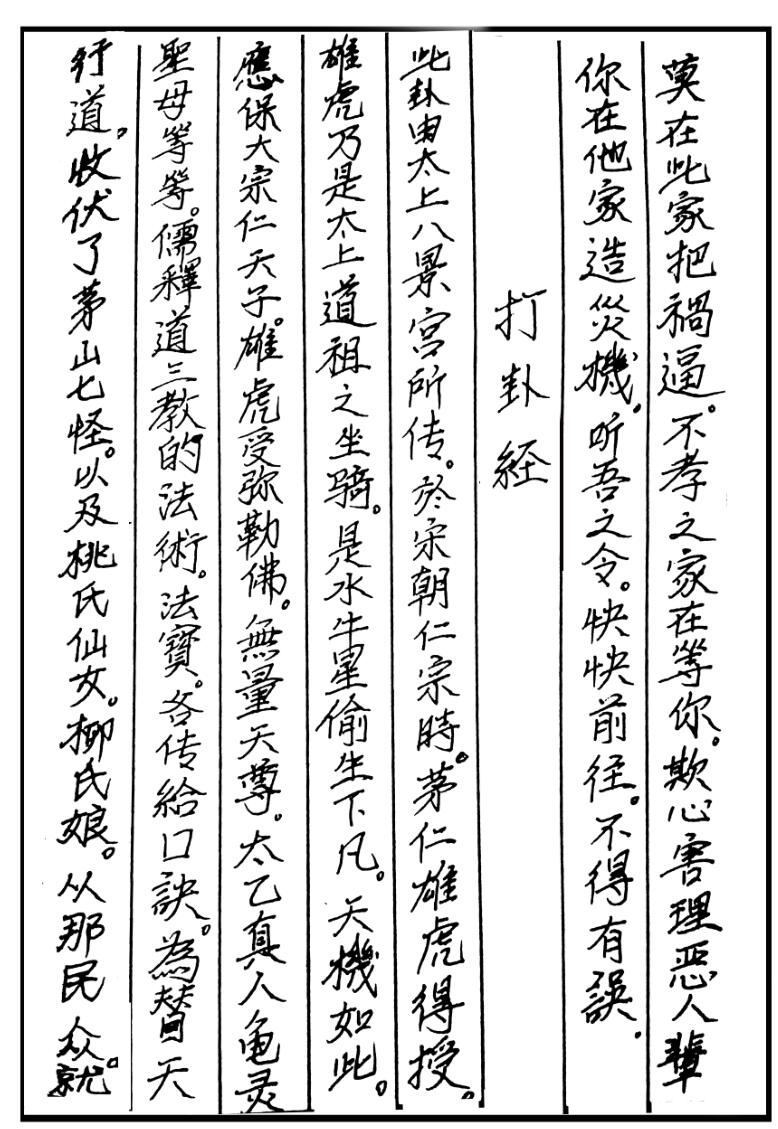 莫在此家把禍逼。不孝之家在等你。欺心害理惡人輩
你在他家造災機。听吾之令。快快前徃。不得有誤。
打卦経
此卦由太上八景宮所传。於宋朝仁宗時。茅仁雄虎得授。
雄虎乃是太上道祖之坐骑。是水牛星偷生下凡。天機如此。
應保大宗仁天子。雄虎受弥勒佛。無量天尊。太乙真人龟灵
聖母等等。儒釋道三教的法術。法寶。各传給口訣。為替天
行道。收伏了茅山七怪。以及桃氏仙女。柳氏娘。从那民众就。